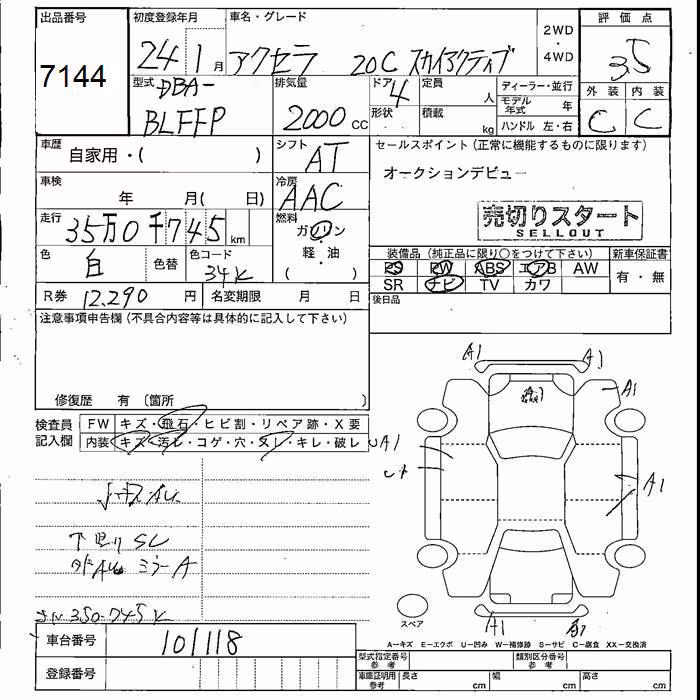 出品番号
7144
初度登録年月
24 1 月
車名・グレード
アクセラ 20C スカイアクティブ
2WD
・
4WD
評価点
3.5
外装 内装
C C
型式
DBA-
BLFFP
排気量
2000 cc
ドア 4
形状
定員 人
積載 kg
ディーラー・並行
モデル年式 年
ハンドル 左・右
車歴
自家用・( )
シフト
AT
セールスポイント(正常に機能するものに限ります)
オークションデビュー
車検
年 月( 日)
冷房
AAC
売切りスタート
SELLOUT
走行
35万0千745 km
燃料
ガソリン
軽・油
( )
色
白
色替
色コード
34K
装備品(純正品に限り○をつけて下さい)
新車保証書
PS PW ABS エアB AW
有・無
SR ナビ TV カワ
R券 12,290 円
名変期限 月 日
後日品
注意事項申告欄(不具合内容等は具体的に記入して下さい)
修復歴 有 〔箇所 〕
検査員
記入欄
FW キズ・飛石・ヒビ割・リペア跡・X要
内装 キズ・汚レ・コゲ・穴・スレ・キレ・破レ
A1
A1
A1
A1
A1
A1
下回りSC
ミラーA
350-745K
スペア
A-キズ E-エクボ U-凹み W-補修跡 S-サビ C-腐食 XX-交換済
車台番号
101118
登録番号
型式指定番号
参考
類別区分番号
参考
車庫証明用
参考
長さ cm
幅 cm
高さ cm